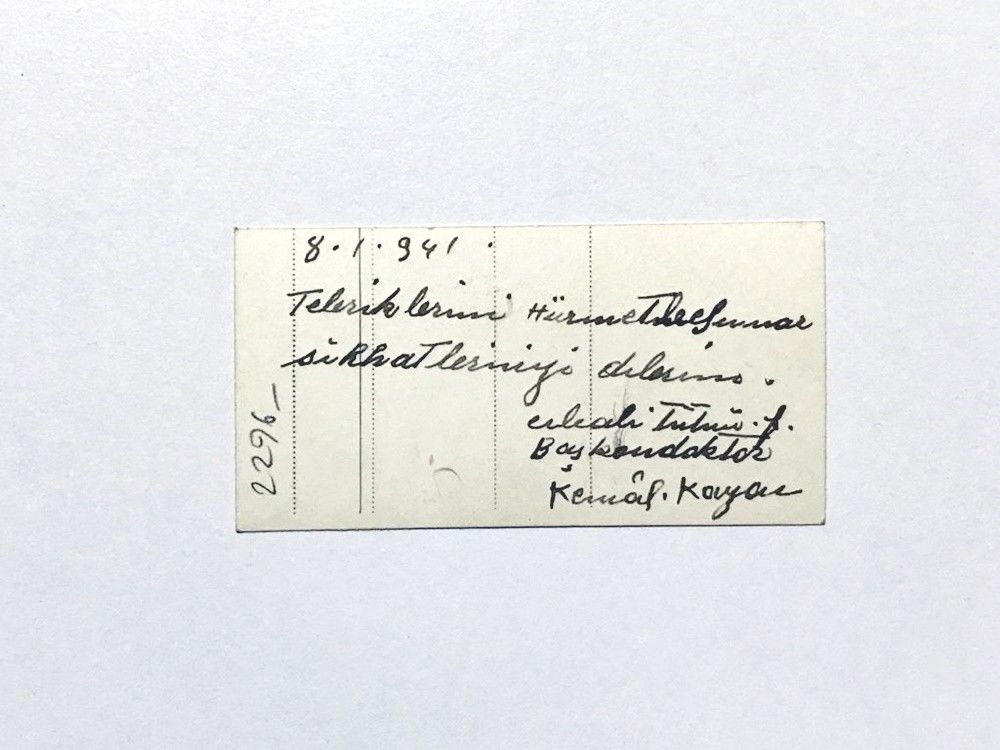 8.1.941.
Tebriklerimi Hürmetle Sunar
sıhhatlerinizi dilerim.
Tütün. f.
Başkondoktor
Kemâl. Kayan
2296_